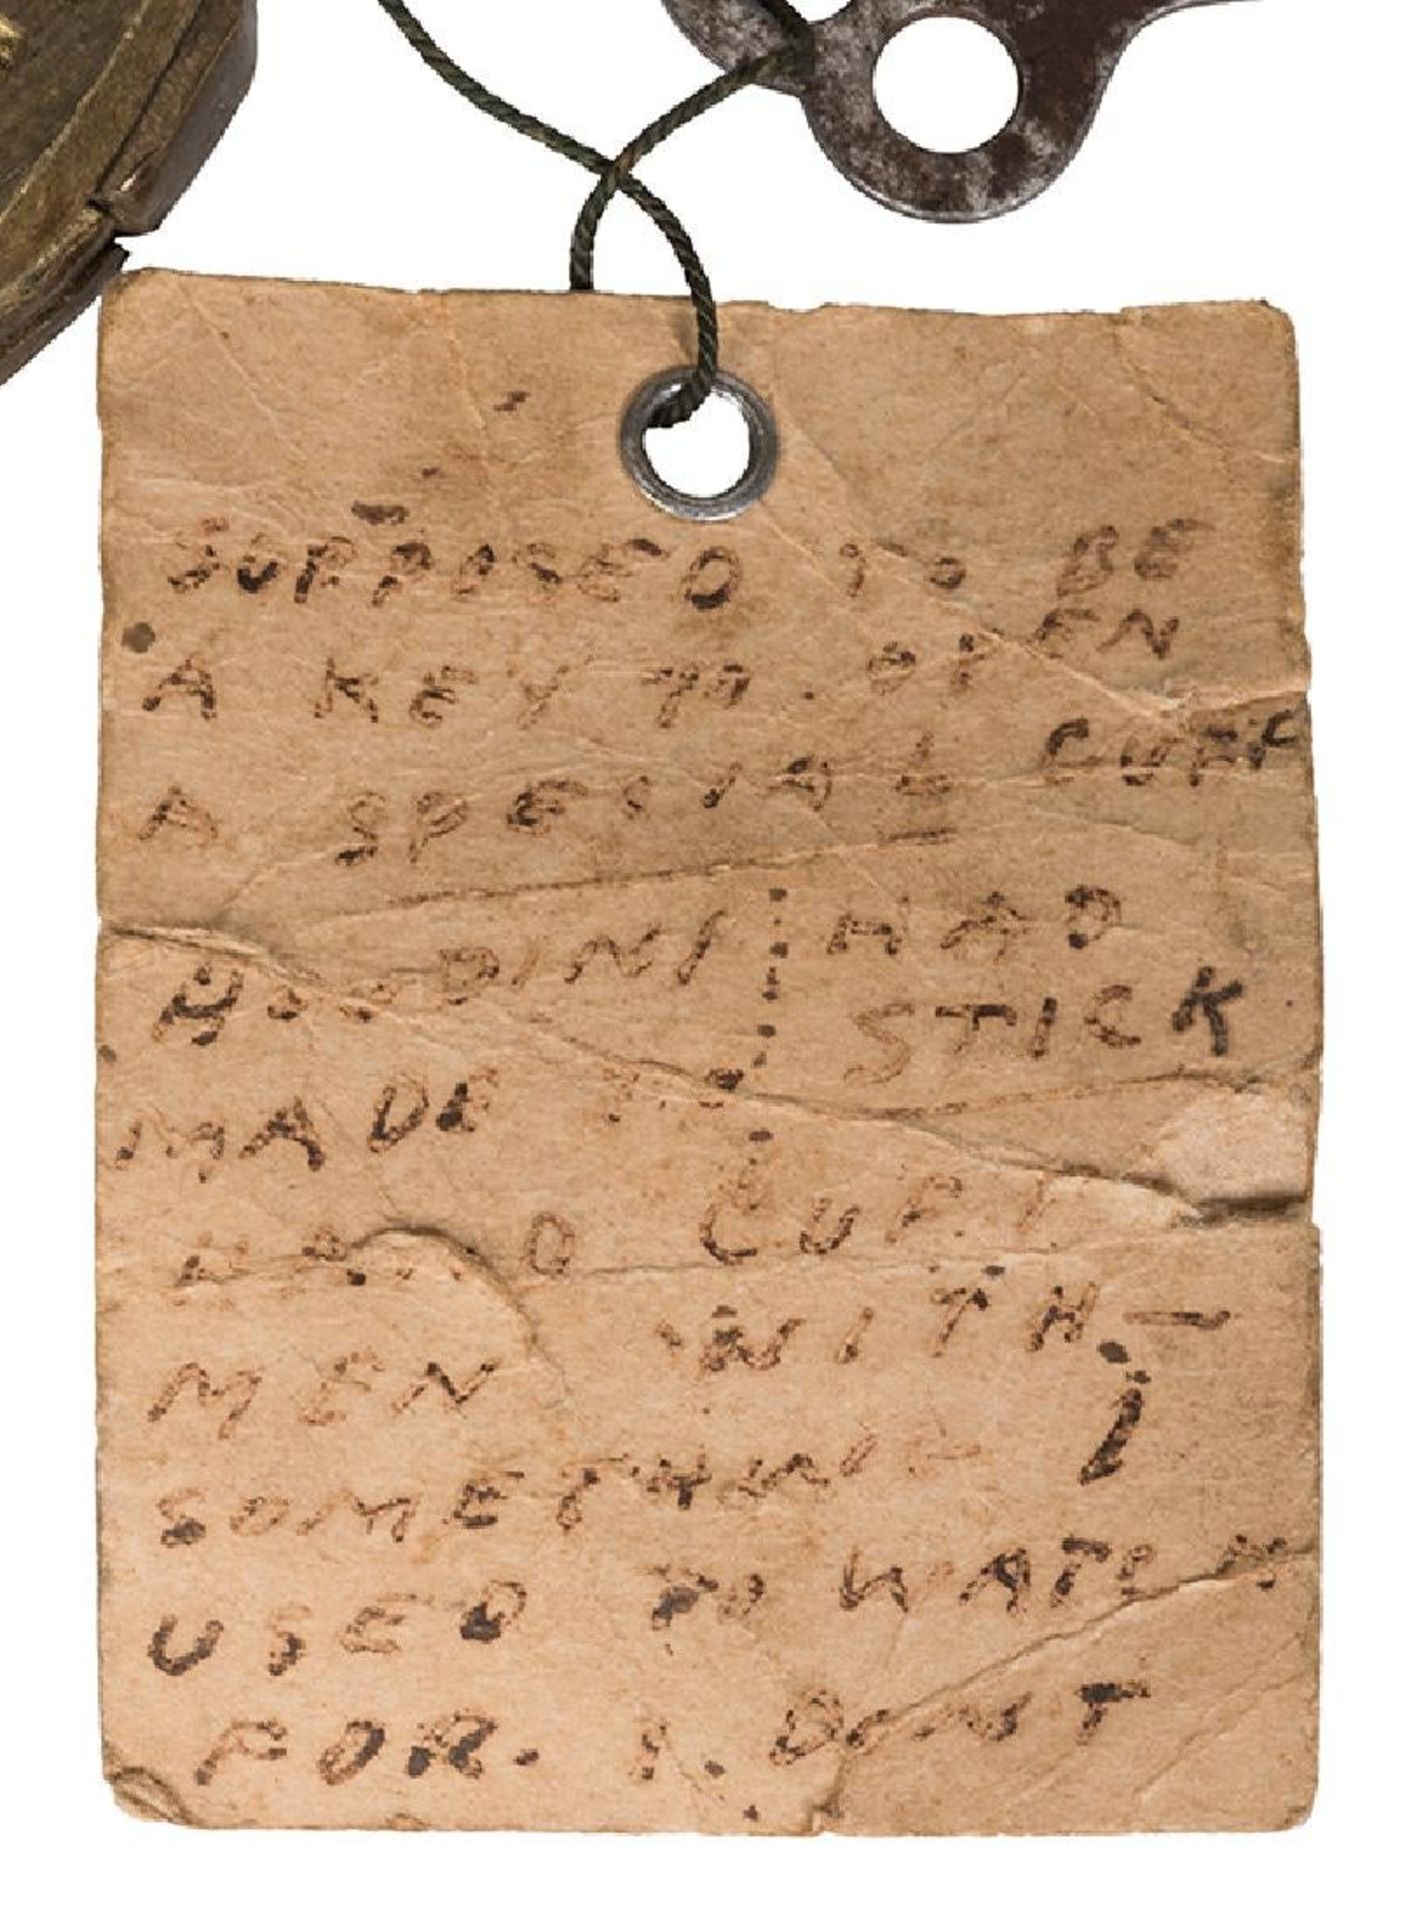 SUPPOSED TO BE
A KEY TO. OPEN
A SPESIAL CUFF
HOODINI HAD
MADE TO STICK
HAND CUFF
MEN WITH —
SOMETHING I
USED TO WATCH
FOR. I. DONST